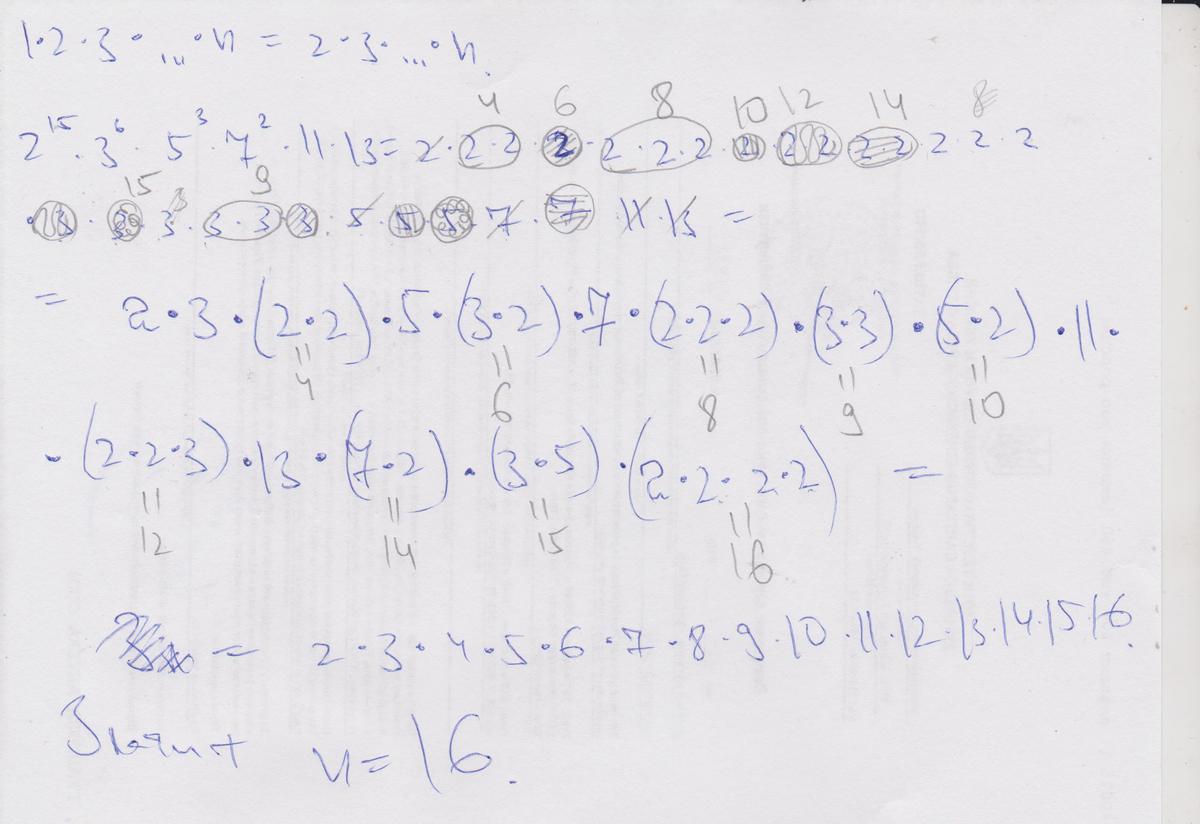 1·2·3·...·n = 2·3·...·n.
4 6 8 10 12 14 8
2^15·3^6·5^3·7^2·11·13=2·2·2·2·2·2·2·2·2·2·2·2·2·2·2
15 3 9
·3·3·3·3·3·3·5·5·5·7·7·11·13 =
= 2·3·(2·2)·5·(3·2)·7·(2·2·2)·(3·3)·(5·2)·11·
4 6 8 9 10
·(2·2·3)·13·(7·2)·(3·5)·(2·2·2·2) =
12 14 15 16
= 2·3·4·5·6·7·8·9·10·11·12·13·14·15·16.
Значит n=16.